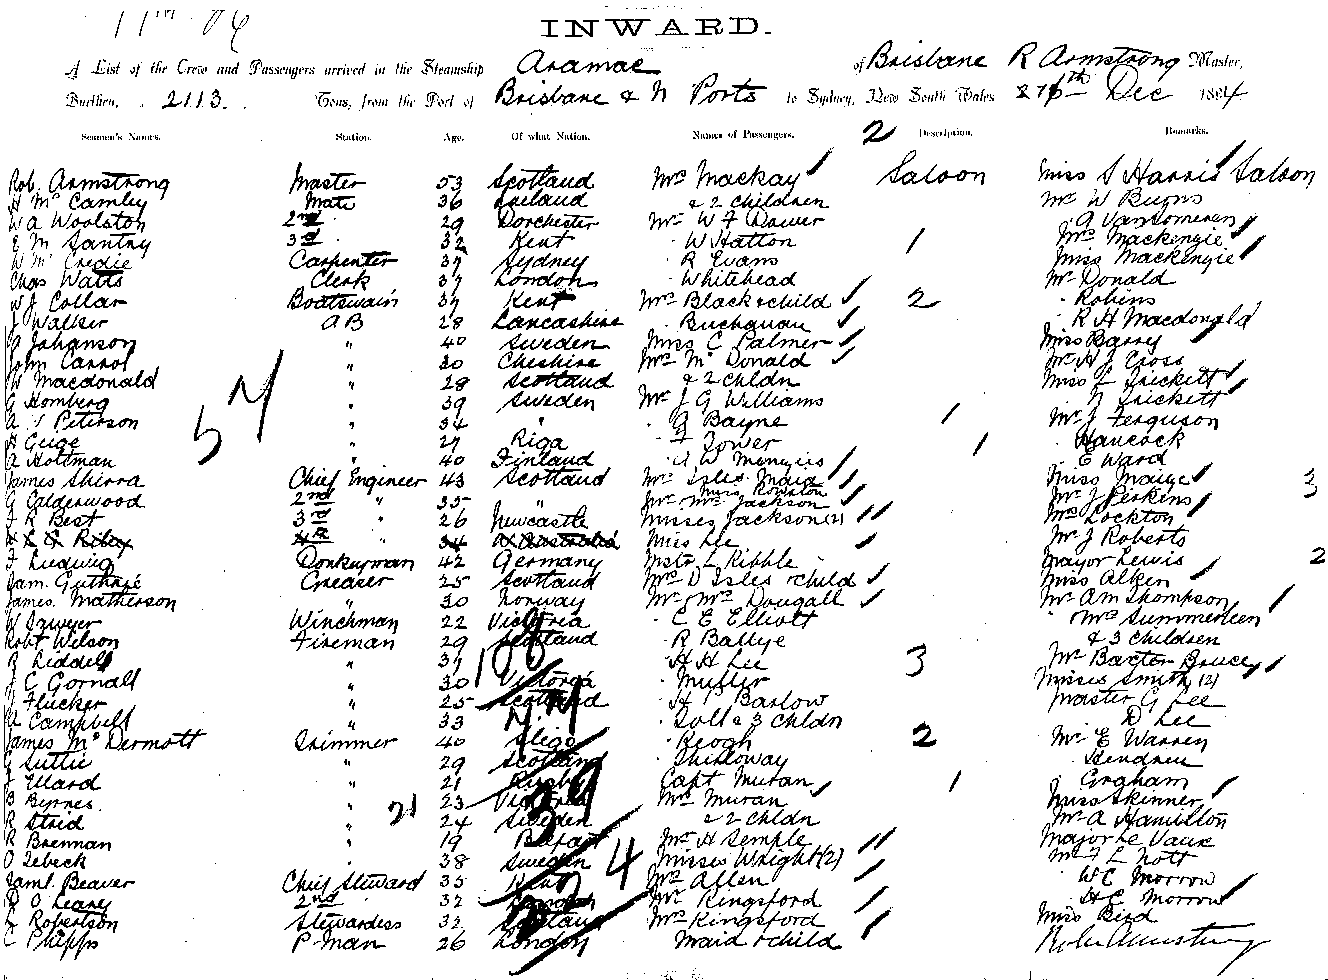 11th 06
INWARD.
A List of the Crew and Passengers arrived in the Steamship Aramac of Brisbane R Armstrong Master,
Burthen, 2113 Tons, from the Port of Brisbane & N Ports to Sydney, New South Wales 27th Dec 1884
Seamen's Names. Station. Age. Of what Nation. Names of Passengers. 2 Description. Remarks.
Rob. Armstrong Master 53 Scotland Mrs Mackay Saloon Miss S Harris Saloon
H McCamley Mate 36 Ireland & 2 children Mr W Burns
W A Woolston 2nd 29 Dorchester Mr W F Dawer A VanSomeren
E M Santry 3rd 32 Kent W Hatton 1 Mrs Mackenzie
W McCredie Carpenter 37 Sydney R Evans Miss Mackenzie
Chas Watts Clerk 37 London Whitehead Mr Donald
W J Collar Boatswain 37 Kent Mrs Black & child 2 Robins
J Walker A B 28 Lancashire Buchanan R H Macdonald
A Johanson " 40 Sweden Miss C Palmer Miss Barry
John Carrol " 30 Cheshire Mrs McDonald Mr H J Cross
W Macdonald " 28 Scotland & 2 chldn Miss L Trickett
G Homberg " 39 Sweden Mr J G Williams N Trickett
A V Peterson " 34 " G Bayne 1 Mr J Ferguson
Geige " 27 Riga F Tower 1 Hancock
A Holtman " 40 Finland W Menzies E Ward
James Shirra Chief Engineer 43 Scotland Mrs Isles Maid Miss Maize 3
G Calderwood 2nd " 35 " Miss Rowston
Mr Mrs Jackson Mr J Perkins
J R Best 3rd " 26 Newcastle Misses Jackson (2) Mrs Lockton
Riley 4th " 34 Australia Miss Lee Mr J Roberts
F Ludwig Donkeyman 42 Germany Mstr L Ribble Mayor Lewis 2
Jam. Guthrie Greaser 25 Scotland Mrs D Isles & child Miss Aitken
James Matherson " 30 Norway Mr & Mrs Dougall Mr A M Thompson
W Dwyer Winchman 22 Victoria C E Elliott Mrs Summerleen
Robt Wilson Fireman 29 Scotland R Ballye & 3 children
R Riddell " 37 " H H Lee 3 Mr Baxter Bruce
J C Gornall " 30 Victoria Muller Misses Smith (2)
J Flucker " 25 Scotland H P Barlow Master G Lee
A Campbell " 33 " Soll & 3 chldn D Lee
James McDermott Trimmer 40 Sligo Keogh 2 Mr E Warren
G Suttie " 29 Scotland Shilloway Hendren
J Ellard " 21 Rugby Capt Muran 1 Grgham
B Byrnes " 23 Victoria Mrs Muran Miss Skinner
R Strid " 24 Sweden & 2 chldn Mr A Hamilton
R Brennan " 19 Belfast Mr H Semple Major Le Vaux
O Zebeck " 38 Sweden Misses Wright (2) Mr F L Nott
Jaml. Beaver Chief Steward 35 Kent Mrs Allen W C Morrow
D O'Leary 2nd " 32 London Mr Kingsford H C Morrow
Robertson Stewardess 32 Scotland Mrs Kingsford Miss Bird
C Phipps P Man 26 London Maid & child Robt Armstrong
57
21
108
77
39
4